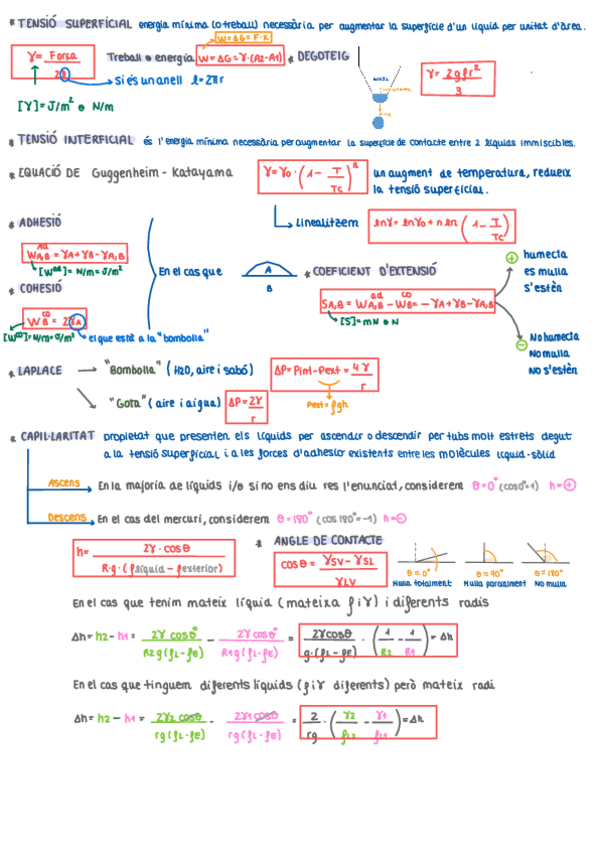 * TENSIÓ SUPERFICIAL energia mínima (o treball) necessària per augmentar la superfície d'un líquid per unitat d'àrea.
W = ΔG = F·x
γ = Força / 2l
Treball o energia W = ΔG = γ·(A2-A1)
* DEGOTEIG
γ = 2gρr² / 3
si és un anell l = 2πr
[γ] = J/m² o N/m
* TENSIÓ INTERFICIAL és l'energia mínima necessària per augmentar la superfície de contacte entre 2 líquids immiscibles.
* EQUACIÓ DE Guggenheim - Katayama
γ = γ0 · (1 - T/Tc)ⁿ
un augment de temperatura, redueix
la tensió superficial.
Linealitzem
lnγ = lnγ0 + n ln (1 - T/Tc)
* ADHESIÓ
W A,B ad = γA + γB - γA,B
[Wad] = N/m = J/m²
En el cas que
A
B
* COEFICIENT D'EXTENSIÓ
SA,B = W A,B ad - W B co = -γA + γB - γA,B
[S] = mN o N
+ humecta
es mulla
s'estén
- No humecta
No mulla
No s'estén
* COHESIÓ
W B co = 2γA
[Wco] = N/m = J/m²
el que està a la "bombolla"
* LAPLACE
"Bombolla" (H2O, aire i sabó)
ΔP = Pint - Pext = 4γ / r
Pext = ρgh
"Gota" (aire i aigua)
ΔP = 2γ / r
* CAPIL·LARITAT propietat que presenten els líquids per ascendir o descendir per tubs molt estrets degut
a la tensió superficial i a les forces d'adhesió existents entre les molècules líquid-sòlid
Ascens
En la majoria de líquids i/o si no ens diu res l'enunciat, considerem θ = 0° (cos0° = 1) h = +
Descens
En el cas del mercuri, considerem θ = 180° (cos 180° = -1) h = -
h = 2γ · cosθ / R·g·(ρlíquid - ρexterior)
* ANGLE DE CONTACTE
cosθ = γSV - γSL / γLV
θ = 0°
θ = 90°
θ = 180°
Mulla totalment
Mulla parcialment
No mulla
En el cas que tenim mateix líquid (mateixa ρ i γ) i diferents radis
Δh = h2 - h1 = 2γ cosθ / R2g(ρL-ρE) - 2γ cosθ / R1g(ρL-ρE) = 2γcosθ / g·(ρL-ρE) · (1/R2 - 1/R1) = Δh
En el cas que tinguem diferents líquids (ρ i γ diferents) però mateix radi
Δh = h2 - h1 = 2γ2 cosθ / rg(ρL-ρE) - 2γ1 cosθ / rg(ρL-ρE) = 2/rg · (γ2/ρL2 - γ1/ρL1) = Δh